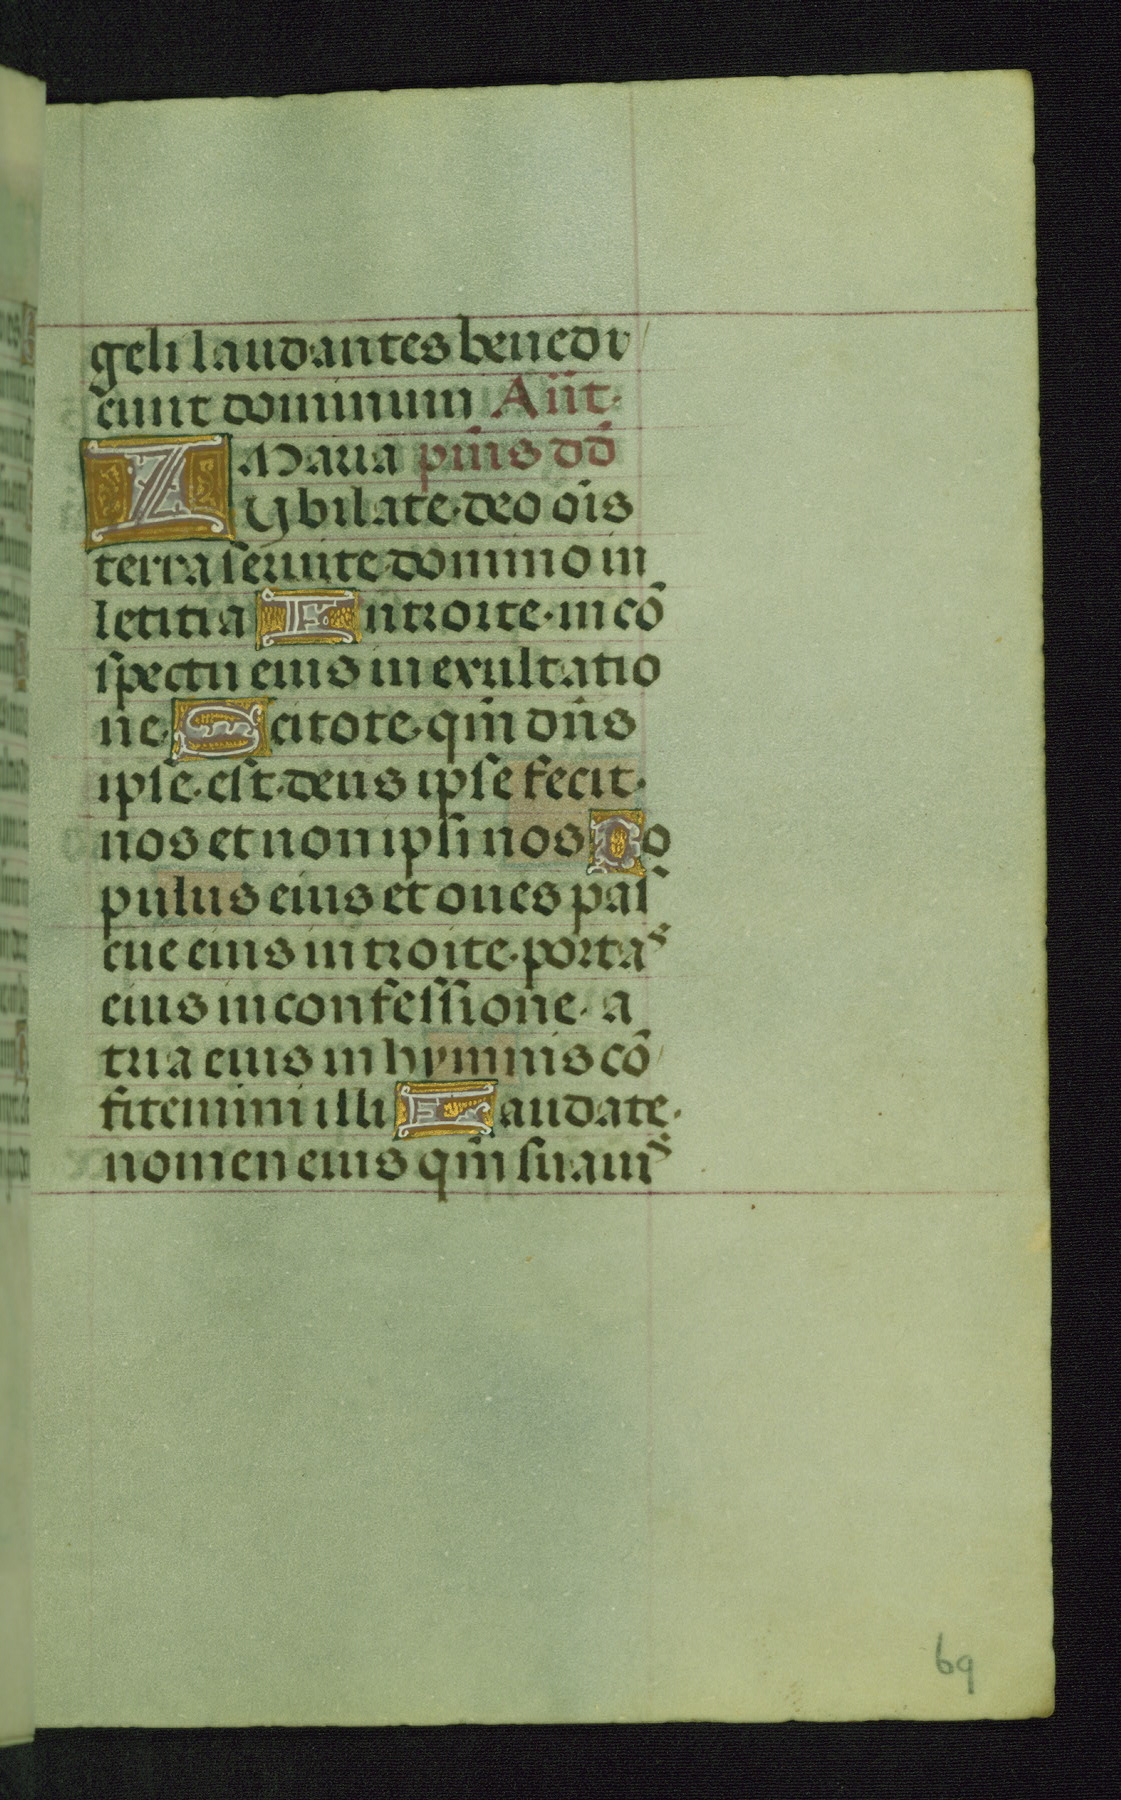 geli laudantes benedi
cunt dominum Añt.
Maria p̄m̄s dd̄
Iubilate deo oīs
terra seruite domino in
letitia Introite in cō
spectu eius in exultatio
ne Scitote qm̄ dn̄s
ipse est deus ipse fecit
nos et non ipsi nos Po
pulus eius et oues pas
cue eius introite portas
eius in confessione a
tria eius in hymnis cō
fitemini illi Laudate
nomen eius qm̄ suauis
69